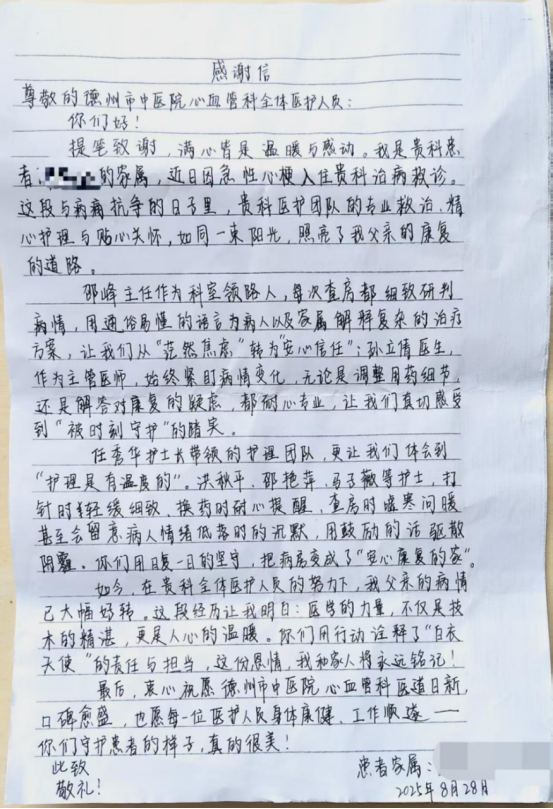 感谢信
尊敬的德州市中医院心血管科全体医护人员：
你们好！
提笔致谢，满心皆是温暖与感动。我是贵科患
者的家属，近日因急性心梗入住贵科治病救诊。
这段与病病抗争的日子里，贵科医护团队的专业救治、精
心护理与贴心关怀，如同一束阳光，照亮了我父亲的康复
的道路。
邵峰主任作为科室领路人，每次查房都细致研判
病情，用通俗易懂的语言为病人以及家属解释复杂的治疗
方案，让我们从“茫然焦虑”转为“安心信任”；孙立倩医生，
作为主管医师，始终紧盯病情变化，无论是调整用药细节，
还是解答对康复的疑虑，都耐心专业，让我们真切感受
到“被时刻守护”的踏实。
任秀华护士长带领的护理团队，更让我们体会到
“护理是有温度的”。洪秋平、邵艳萍、马子薇等护士，打
针时轻缓细致，换药时耐心提醒，查房时嘘寒问暖
甚至会留意病人情绪低落时的沉默，用鼓励的话驱散
阴霾。你们用日复一日的坚守，把病房变成了“安心康复的家”。
如今，在贵科全体医护人员的努力下，我父亲的病情
已大幅好转。这段经历让我明白：医学的力量，不仅是技
术的精湛，更是人心的温暖。你们用行动诠释了“白衣
天使”的责任与担当，这份恩情，我和家人将永远铭记！
最后，衷心祝愿德州市中医院心血管科医道日新，
口碑愈盛，也愿每一位医护人员身体康健、工作顺遂——
你们守护患者的样子，真的很美！
此致
患者家属：
敬礼！
2025年8月28日